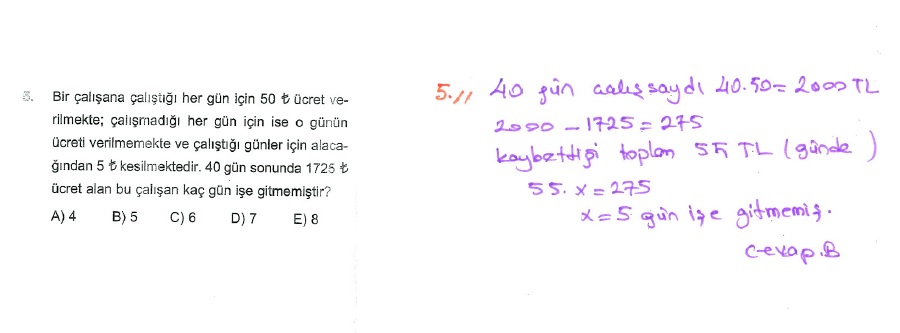 5. Bir çalışana çalıştığı her gün için 50 ₺ ücret ve-
rilmekte; çalışmadığı her gün için ise o günün
ücreti verilmemekte ve çalıştığı günler için alaca-
ğından 5 ₺ kesilmektedir. 40 gün sonunda 1725 ₺
ücret alan bu çalışan kaç gün işe gitmemiştir?
A) 4 B) 5 C) 6 D) 7 E) 8
5.// 40 gün çalışsaydı 40.50= 2000 TL
2000 - 1725 = 275
kaybettiği toplam 55 TL (günde)
55. x = 275
x = 5 gün işe gitmemiş.
Cevap.B